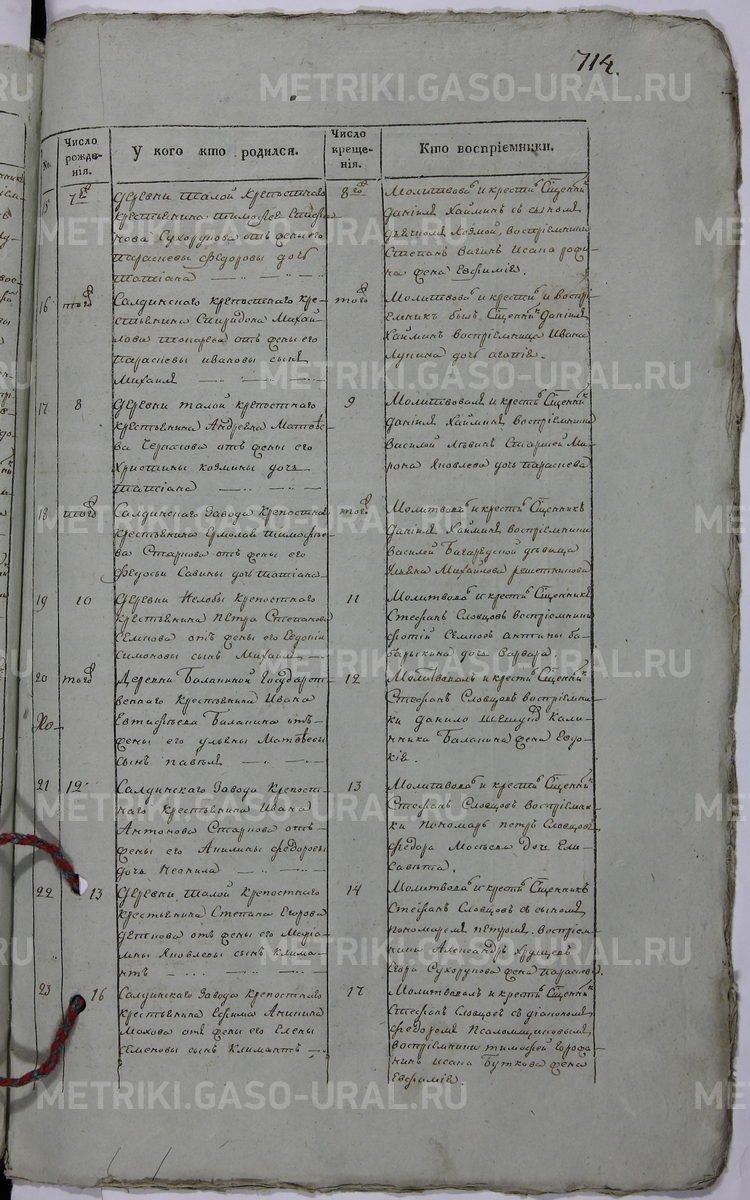 714.
Число рожде-нія.
У кого кто родился.
Число креще-нія.
Кто воспріемники.
15 7го Деревни Талой Крѣпостнаго
крестьянина Тимофея Стефа-
нова Сухорукова отъ жены его
Парасневы Федоровы дочь
Татіана
8го Молитвовалъ и крестилъ Сщенникъ
Даніилъ Хайминъ съ сыномъ
Степанъ Вагинъ Исака
жена Евфимія.
16 того Салдинскаго крѣпостнаго кре-
стьянина Спиридона Михай-
лова отъ жены его
Парасневы Ивановы сынъ
Михаилъ
того Молитвовалъ и крестилъ и воспрі-
емникъ былъ Сщенникъ Даніилъ
Хайминъ воспріемница Ивана
Лупина дочь Агафія.
17 8 Деревни Талой крѣпостнаго
крестьянина Андреяна Матвѣе-
ва отъ жены его
Христины Козмины дочь
Татіана
9 Молитвовалъ и крестилъ Сщенникъ
Даніилъ Хайминъ воспріемники
Василей Ми-
рона Яковлева дочь Параснева
18 того Салдинскаго Завода Крѣпостнаго
крестьянина Ермолая Тимофѣе-
ва Старкова отъ жены его
Федосьи Савины дочь Татіана
того Молитвовалъ и крестилъ Сщенникъ
Даніилъ Хайминъ воспріемники
Василей дѣвица
Ульяна Михайлова Решетникова
19 10 Деревни Нелобы крѣпостнаго
крестьянина Петра Степанова
Семкова отъ жены его Евдокіи
Симоновы сынъ Михаилъ
11 Молитвовалъ и крестилъ Сщенникъ
Стефанъ Словцовъ воспріемники
Фотій Семковъ Антипы Ба-
барыкина дочь Варвара.
20 того Деревни Балакиной Государст-
веннаго крестьянина Ивана
Евтифѣева Балакина отъ
жены его Ульяны Матвѣевы
сынъ Павелъ
12 Молитвовалъ и крестилъ Сщенникъ
Стефанъ Словцовъ воспріемни-
ки Данило Кали-
нника Балакина жена Евдо-
кія.
21 12 Салдинскаго Завода Крѣпост-
наго крестьянина Ивана
Антонова Старкова отъ
жены его Акилины Федоровы
дочь Неонила
13 Молитвовалъ и крестилъ Сщенникъ
Стефанъ Словцовъ воспріемни-
ки пономарь петръ Словцовъ
Федора Мосѣева дочь Ели-
савѣта.
22 13 Деревни Талой Крѣпостнаго
крестьянина Степана Егорова
отъ жены его Маріа-
мны Яковлевы сынъ Клима-
нтъ
14 Молитвовалъ и крестилъ Сщенникъ
Стефанъ Словцовъ съ сыномъ
пономаремъ петромъ. воспріем-
ники Александръ Хрущевъ
Егора Сухорукова жена Параснева.
23 16 Салдинскаго Завода крѣпостнаго
крестьянина Ефима Аникина
Мохова отъ жены его Елены
Семеновы сынъ Климантъ
17 Молитвовалъ и крестилъ Сщенникъ
Стефанъ Словцовъ съ діакономъ
Федоромъ Псаломщиковымъ
воспріемники Тимофей
Исака Буткова жена
Евфимія.
METRIKI.GASO-URAL.RU